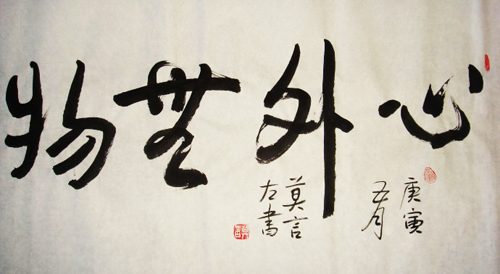 心外無物
庚寅
五月
莫言
左書